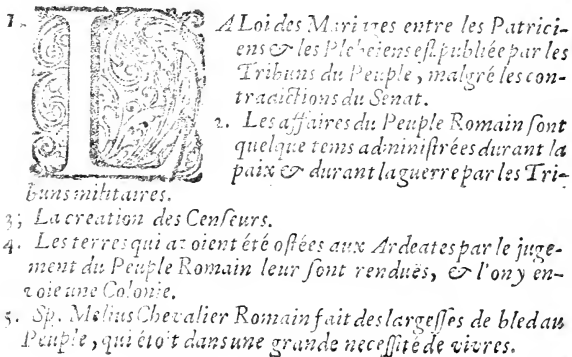 1. LA Loi des Mariages entre les Patrici-
ens & les Plebeiens eſt publiée par les
Tribuns du Peuple, malgré les con-
tradictions du Senat.
2. Les affaires du Peuple Romain ſont
quelque tems adminiſtrées durant la
paix & durant la guerre par les Tri-
buns militaires.
3; La creation des Cenſeurs.
4. Les terres qui avoient été oſtées aux Ardeates par le juge-
ment du Peuple Romain leur ſont renduës, & l'on y en-
voie une Colonie.
5. Sp. Melius Chevalier Romain fait des largeſſes de bled au
Peuple, qui étoit dans une grande neceſſité de vivres.